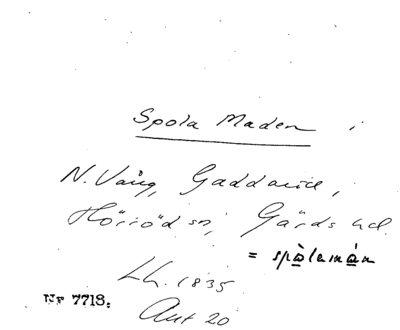 Spola Maden i
N. Vång, Gaddaröd,
Hörröd sn, Gärds hd.
= spòlamán
Lh. 1835
Akt 20
Nr 7718.